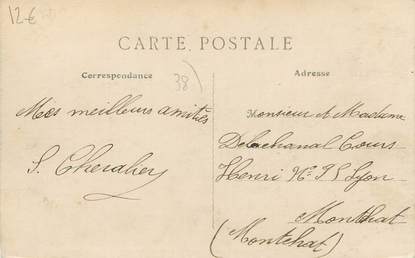 12€
CARTE POSTALE
Correspondance
38
Adresse
Mes meilleurs amitiés
S. Chevalier
Monsieur et Madame
Delachanal Cours
Henri Lyon
Montchat
(Montchat)